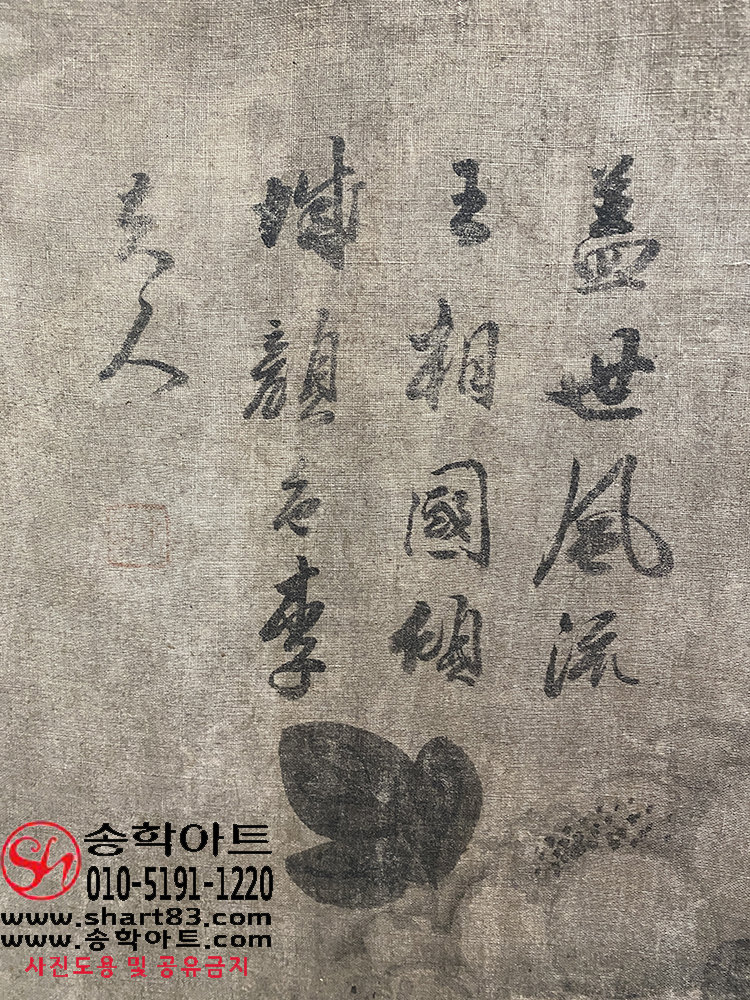 盖世風流
王相國傾
城顏色李
夫人
Sh
송학아트
010-5191-1220
www.shart83.com
www.송학아트.com
사진도용 및 공유금지